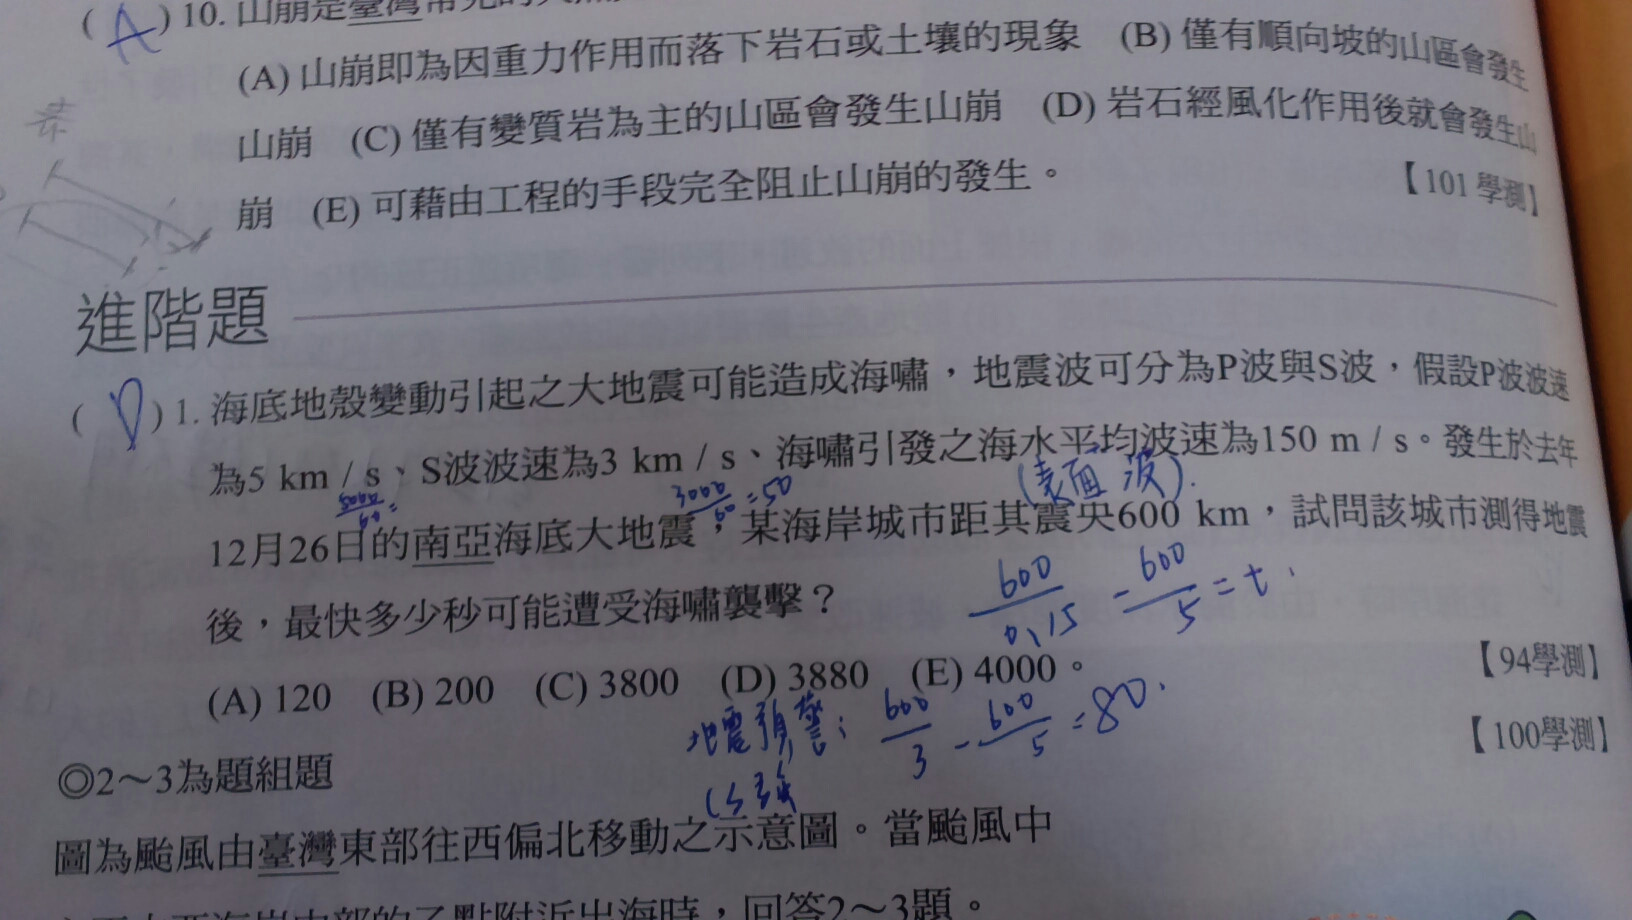 (A) 10. 山崩是臺灣常見的
(A) 山崩即為因重力作用而落下岩石或土壤的現象 (B) 僅有順向坡的山區會發生
山崩 (C) 僅有變質岩為主的山區會發生山崩 (D) 岩石經風化作用後就會發生山
崩 (E) 可藉由工程的手段完全阻止山崩的發生。
【101 學測】
進階題
(D) 1. 海底地殼變動引起之大地震可能造成海嘯，地震波可分為P波與S波，假設P波波速
為5 km / s、S波波速為3 km / s、海嘯引發之海水平均波速為150 m / s。發生於去年
5000/60=
3000/60=50
(表面波).
12月26日的南亞海底大地震，某海岸城市距其震央600 km，試問該城市測得地震
後，最快多少秒可能遭受海嘯襲擊？
600/0.15 - 600/5 = t.
(A) 120 (B) 200 (C) 3800 (D) 3880 (E) 4000。
【94學測】
地震預警: 600/3 - 600/5 = 80.
【100學測】
◎2～3為題組題
圖為颱風由臺灣東部往西偏北移動之示意圖。當颱風中
點附近出海時，回答2～3題。